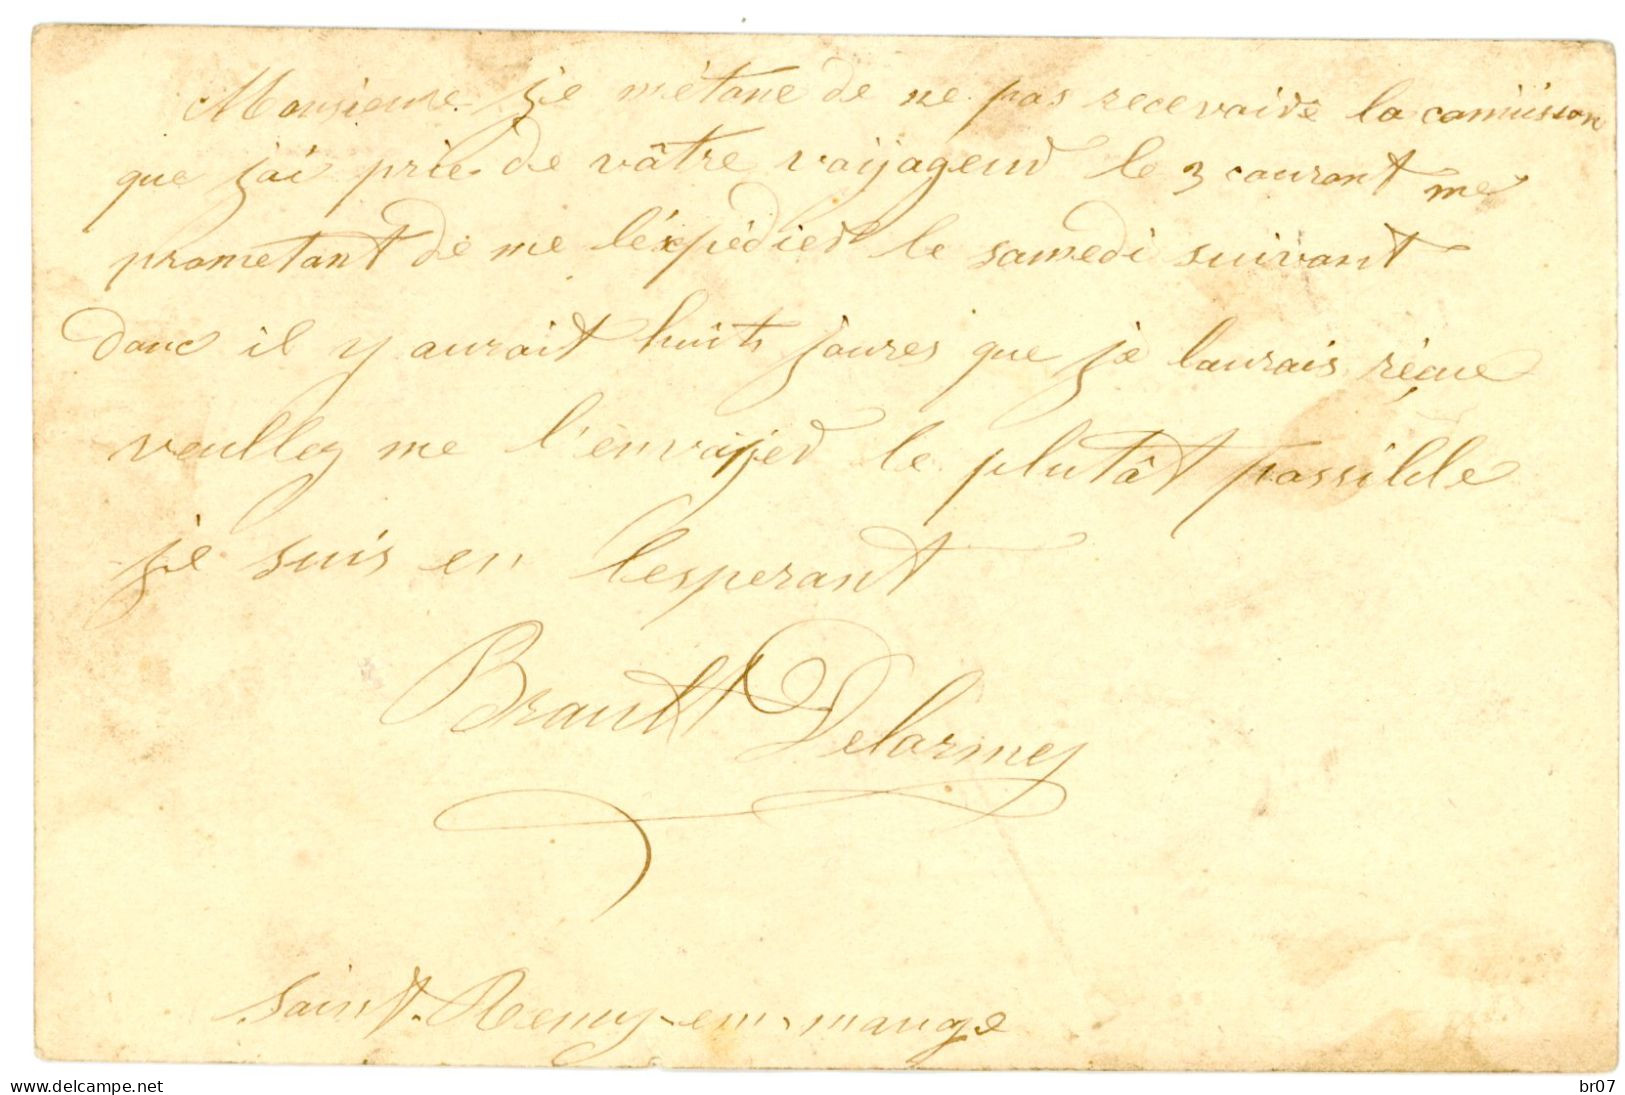 Monsieure je métone de ne pas recevaire la comiission
que jai prie de vâtre vaijageur le 3 courant me
prometant de me léxpédier le samedi suivant
donc il y aurait huits joures que je laurais réçue
veulley me l'envoijer le plutât possible
je suis en lesperant
Brault Delarmey
Saint-Remy-en-mauge
www.delcampe.net
br07